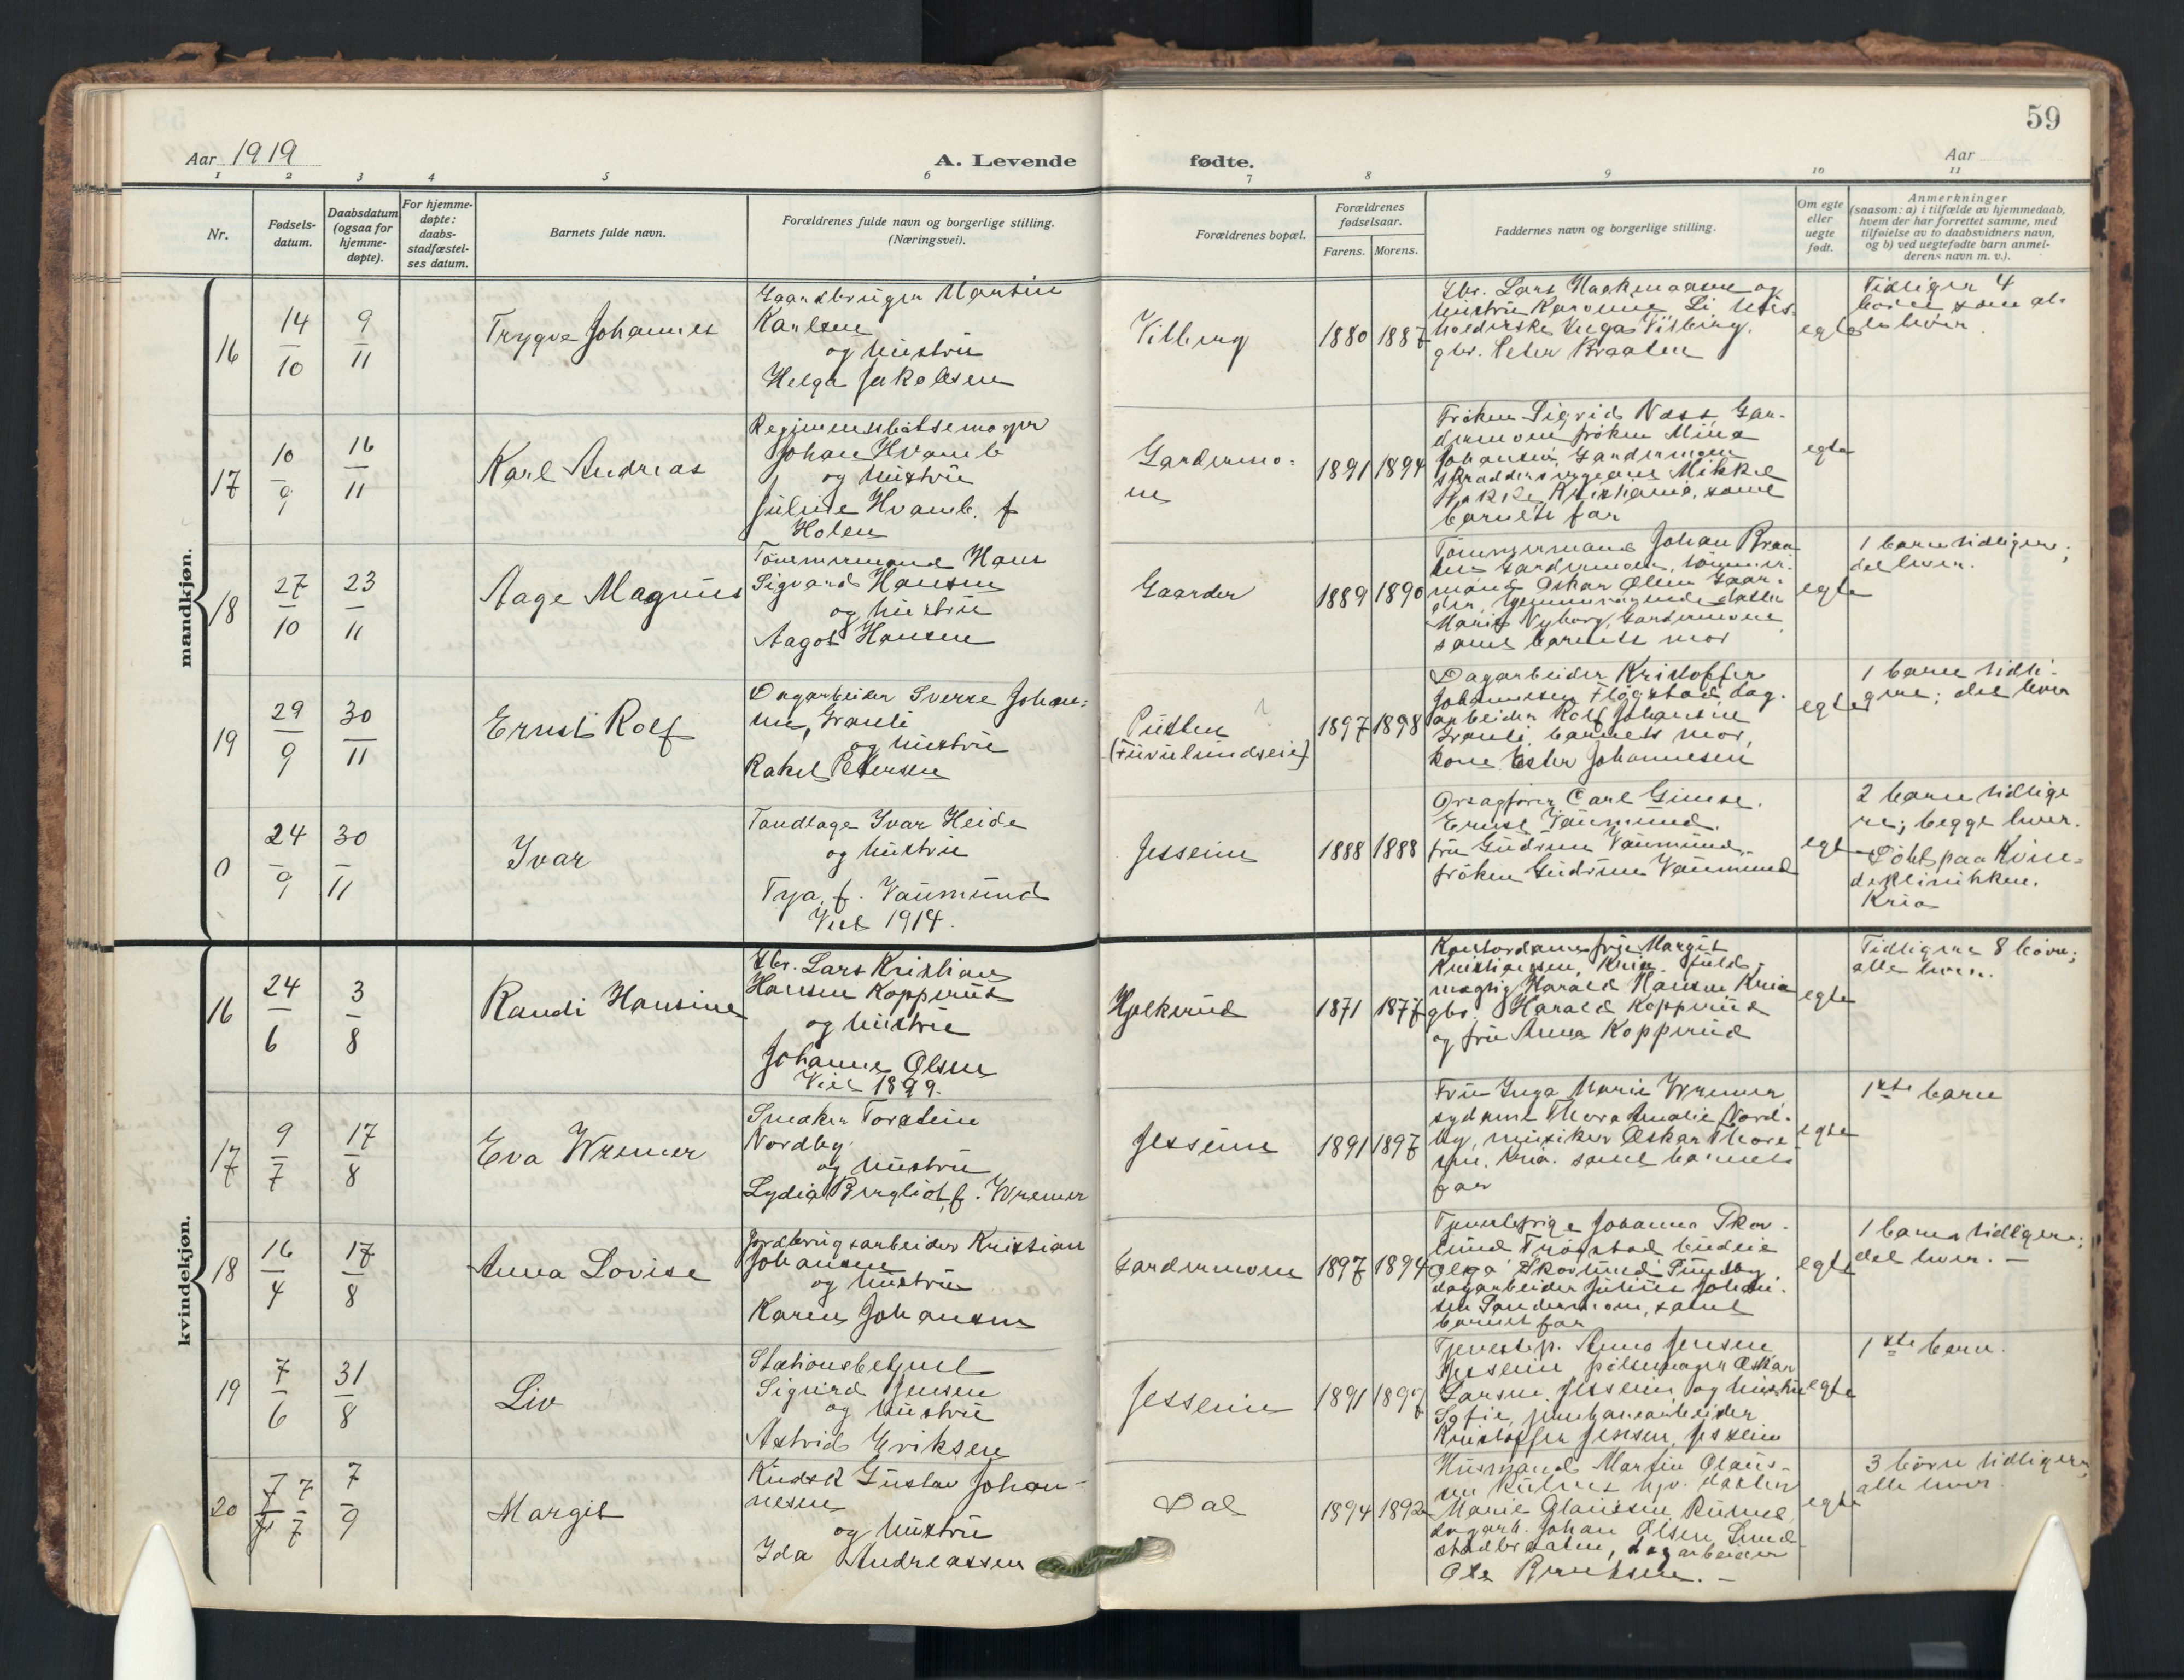 59
Aar 1919
A. Levende
fødte.
Aar
1 2 3 4 5 6 7 8 9 10 11
Nr.
Fødsels-
datum.
Daabsdatum
(ogsaa for
hjemme-
døpte).
For hjemme-
døpte:
daabs-
stadfæstel-
ses datum.
Barnets fulde navn.
Forældrenes fulde navn og borgerlige stilling.
(Næringsvei).
Forældrenes bopæl.
Forældrenes
fødselsaar.
Farens. Morens.
Faddernes navn og borgerlige stilling.
Om egte
eller
uegte
født.
Anmerkninger
(saasom: a) i tilfælde av hjemmedaab,
hvem der har forrettet samme, med
tilføielse av to daabsvidners navn,
og b) ved uegtefødte barn anmel-
derens navn m. v.).
mandkjøn.
16
14/10
9/11
Trygve Johannes
Gaardbruger Martin
Karlsen
og hustru
Helga Jakobsen
Vilberg
1880 1887
Gbr. Lars Haakenaasen og
hustru Karoline Li
holderske Inga Vilberg.
gbr. Peter Braaten
egte
Tidligere 4
børn som al-
le lever.
17
10/9
16/11
Karl Andreas
Regimentsbøssemager
Johan Hvamb
og hustru
Juline Hvamb. f
Holen
Gardermo-
en
1891 1894
Frøken Sigrid Næss, Gar-
dermoen frøken Mina
Johansen, Gardermoen
Mikkel
Bakke, Kristiania, samt
barnets far
egte
18
27/10
23/11
Aage Magnus
Tømmermand Hans
Sigvard Hansen
og hustru
Aagot Hansen
Gaarder
1889 1890
Tømmermand Johan Braa-
ten Gardermoen, tømmer-
mand Oskar Olsen Gaar-
der, hjemmeværende datter
Marie Nyborg, Gardermoen
samt barnets mor
egte
1 barn tidligere;
det lever.
19
29/9
30/11
Ernst Rolf
Dagarbeider Sverre Johan-
sen, Granli
og hustru
Rakel Pettersen
Pusten ?
(Furulundseie)
1897 1898
Dagarbeider Kristoffer
Johannesen Flogstad, dag-
arbeider Rolf Johansen
Granli, barnets mor,
kone Ester Johannesen
egte
1 barn tidli-
gere; det lever
0
24/9
30/11
Ivar
Tandlæge Ivar Heide
og hustru
Tya, f. Vaumund
Viet 1914.
Jesseim
1888 1888
Orsagfører Carl Gimse.
Ernst Vaumund.
fru Gudrun Vaumund,
frøken Gudrun Vaumund
egte
2 barn tidlige
re; begge lever.
Født paa Kvin-
deklinikken.
Kria
kvindekjøn.
16
24/6
3/8
Randi Hansine
Gbr. Lars Kristian
Hansen Kopperud
og hustru
Johanne Olsen
Viet 1899.
Hjelkerud
1871 1877
Kontordame frk. Margit
Kristiansen, Kria. fuld-
mægtig Harald Hansen Kria
gbr. Harald Kopperud
og fru Anna Kopperud
egte
Tidligere 8 børn;
alle lever.
17
9/7
17/8
Eva Wremer
Snedker Torstein
Nordby
og hustru
Lydia Bergliot, f. Wremer
Jesseim
1891 1897
Fru Inga Marie Wremer,
sydame Thora Amalie Nord-
by, musiker Oskar Thore
sen, Kria. samt barnets
far
egte
1ste barn
18
16/4
17/8
Anna Lovise
Jordbrugsarbeider Kristian
Johansen
og hustru
Karen Johansen
Gardermoen
1897 1894
Tjenestepige Johanna Skov-
lund Trøgstad budeie
Olga Skovlund Sundby
dagarbeider Julius Johan-
sen Gardermoen, samt
barnets far
egte
1 barn tidligere;
det lever. –
19
7/6
31/8
Liv
Stationsbetjent
Sigurd Jensen
og hustru
Astrid Eriksen
Jesseim
1891 1897
Tjenestep. Anna Jensen
Jesseim pølsemager Oskar
Larsen, Jesseim og hustru
Sofie, jernbanearbeider
Kristoffer Jensen, Jesseim
egte
1ste barn.
20
7/7
7/9
Margit
Kudsk Gustav Johan-
nesen
og hustru
Ida Andreassen
Dal
1894 1892
Husmand Martin Olaus-
sen hjv. datter
Marie Olaussen
dagarb. Johan Olsen Sund-
stadbraaten, dagarbeider
Ole Berntsen. –
egte
3 børn tidligere,
alle lever.